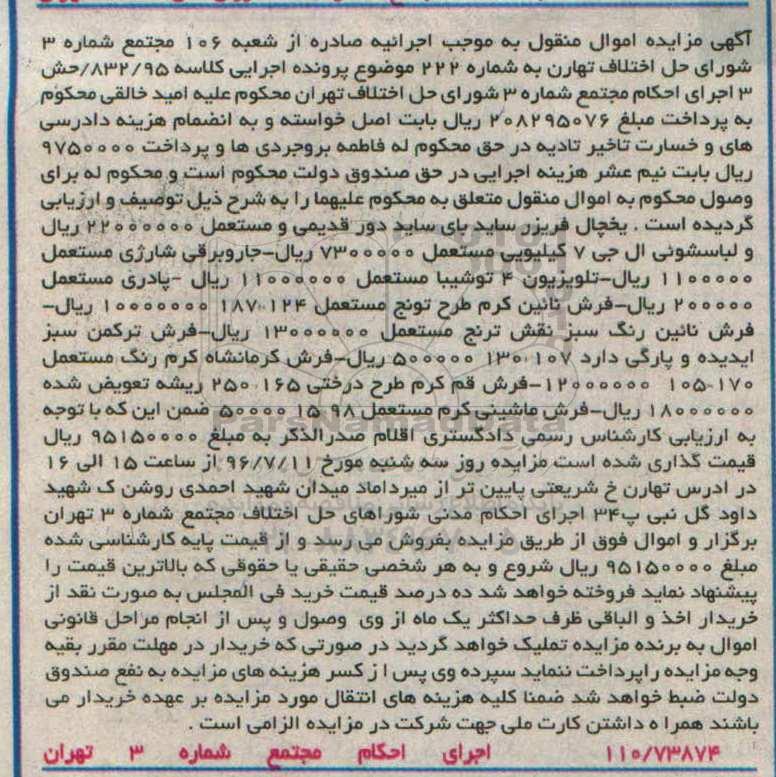 آگهی مزایده اموال منقول به موجب اجرائیه صادره از شعبه ۱۰۶ مجتمع شماره ۳
شورای حل اختلاف تهارن به شماره ۲۲۲ موضوع پرونده اجرایی کلاسه ۸۳۲/۹۵/حش
۳ اجرای احکام مجتمع شماره ۳ شورای حل اختلاف تهران محکوم علیه امید خالقی محکوم
به پرداخت مبلغ ۲۰۸۲۹۵۰۷۶ ریال بابت اصل خواسته و به انضمام هزینه دادرسی
های و خسارت تاخیر تادیه در حق محکوم له فاطمه بروجردی ها و پرداخت ۹۷۵۰۰۰۰
ریال بابت نیم عشر هزینه اجرایی در حق صندوق دولت محکوم است و محکوم له برای
وصول محکوم به اموال منقول متعلق به محکوم علیهما را به شرح ذیل توصیف و ارزیابی
گردیده است . یخچال فریزر ساید بای ساید دور قدیمی و مستعمل ۲۲۰۰۰۰۰۰ ریال
و لباسشوئی ال جی ۷ کیلیویی مستعمل ۷۳۰۰۰۰۰ ریال-جاروبرقی شارژی مستعمل
۱۱۰۰۰۰۰ ریال-تلویزیون ۴ توشیبا مستعمل ۱۱۰۰۰۰۰۰ ریال -پادری مستعمل
۲۰۰۰۰۰ ریال-فرش نائین کرم طرح تونج مستعمل ۱۲۴*۱۸۷ ۱۰۰۰۰۰۰۰ ریال-
فرش نائین رنگ سبز نقش ترنج مستعمل ۱۳۰۰۰۰۰۰ ریال-فرش ترکمن سبز
ایدیده و پارگی دارد ۱۰۷*۱۳۰ ۵۰۰۰۰۰ ریال-فرش کرمانشاه کرم رنگ مستعمل
۱۷۰*۱۰۵ ۱۲۰۰۰۰۰۰-فرش قم کرم طرح درختی ۱۶۵*۲۵۰ ریشه تعویض شده
۱۸۰۰۰۰۰۰ ریال-فرش ماشینی کرم مستعمل ۹۸*۱۵ ۵۰۰۰۰ ضمن این که با توجه
به ارزیابی کارشناس رسمی دادگستری اقلام صدرالذکر به مبلغ ۹۵۱۵۰۰۰۰ ریال
قیمت گذاری شده است مزایده روز سه شنبه مورخ ۹۶/۷/۱۱ از ساعت ۱۵ الی ۱۶
در ادرس تهارن خ شریعتی پایین تر از میرداماد میدان شهید احمدی روشن ک شهید
داود گل نبی پ۳۴ اجرای احکام مدنی شوراهای حل اختلاف مجتمع شماره ۳ تهران
برگزار و اموال فوق از طریق مزایده بفروش می رسد و از قیمت پایه کارشناسی شده
مبلغ ۹۵۱۵۰۰۰۰ ریال شروع و به هر شخصی حقیقی یا حقوقی که بالاترین قیمت را
پیشنهاد نماید فروخته خواهد شد ده درصد قیمت خرید فی المجلس به صورت نقد از
خریدار اخذ و الباقی ظرف حداکثر یک ماه از وی وصول و پس از انجام مراحل قانونی
اموال به برنده مزایده تملیک خواهد گردید در صورتی که خریدار در مهلت مقرر بقیه
وجه مزایده راپرداخت ننماید سپرده وی پس ا ز کسر هزینه های مزایده به نفع صندوق
دولت ضبط خواهد شد ضمنا کلیه هزینه های انتقال مورد مزایده بر عهده خریدار می
باشند همرا ه داشتن کارت ملی جهت شرکت در مزایده الزامی است .
۱۱۰/۷۳۸۷۴ اجرای احکام مجتمع شماره ۳ تهران
ParaNamadData